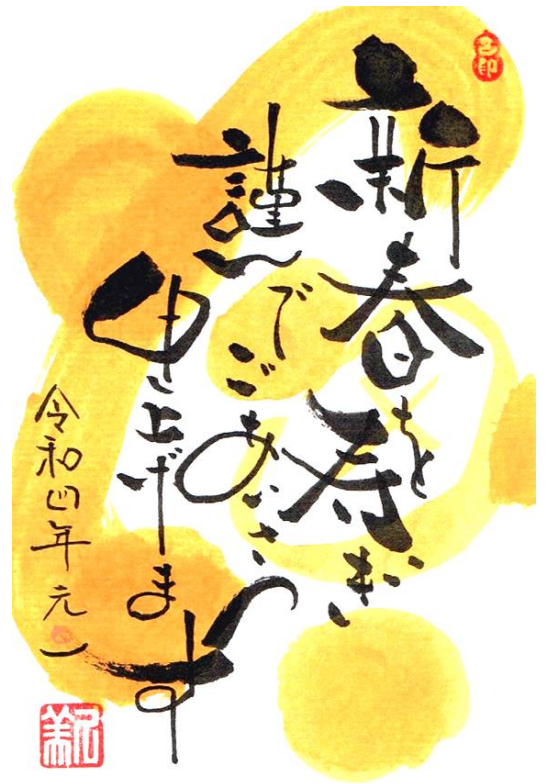 新春を寿ぎ
謹んでごあいさつ
申し上げます
令和四年元一